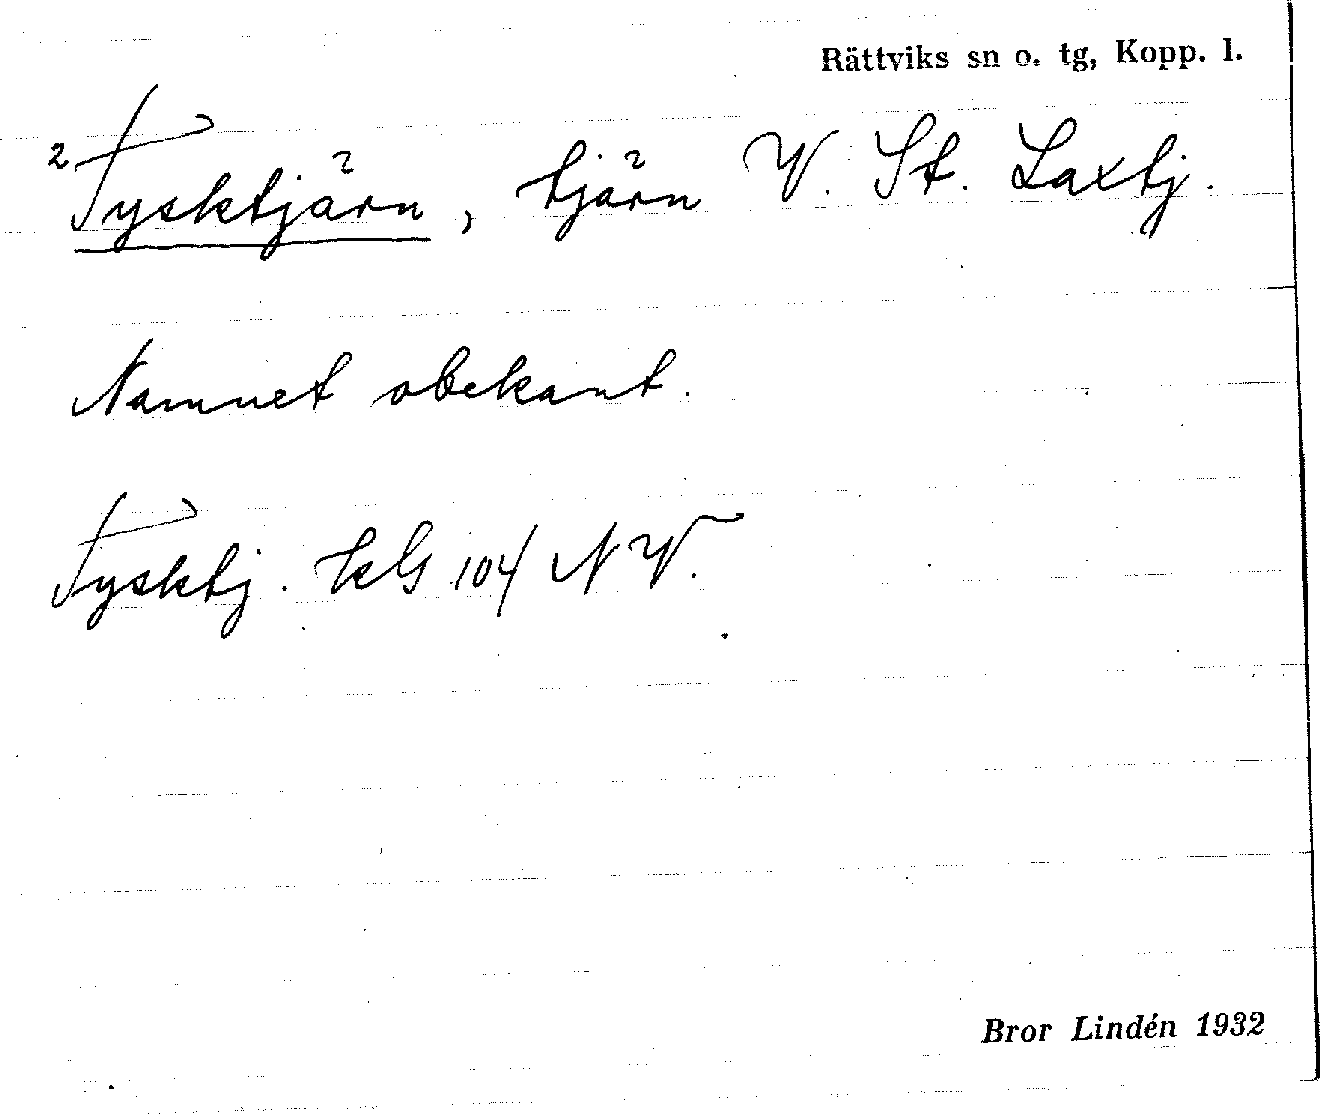 Rättviks sn o. tg, Kopp. l.
2 Tysktjärn, tjärn V. St. Laxtj.
Namnet obekant.
Tysktj. kG 104 NV.
Bror Lindén 1932